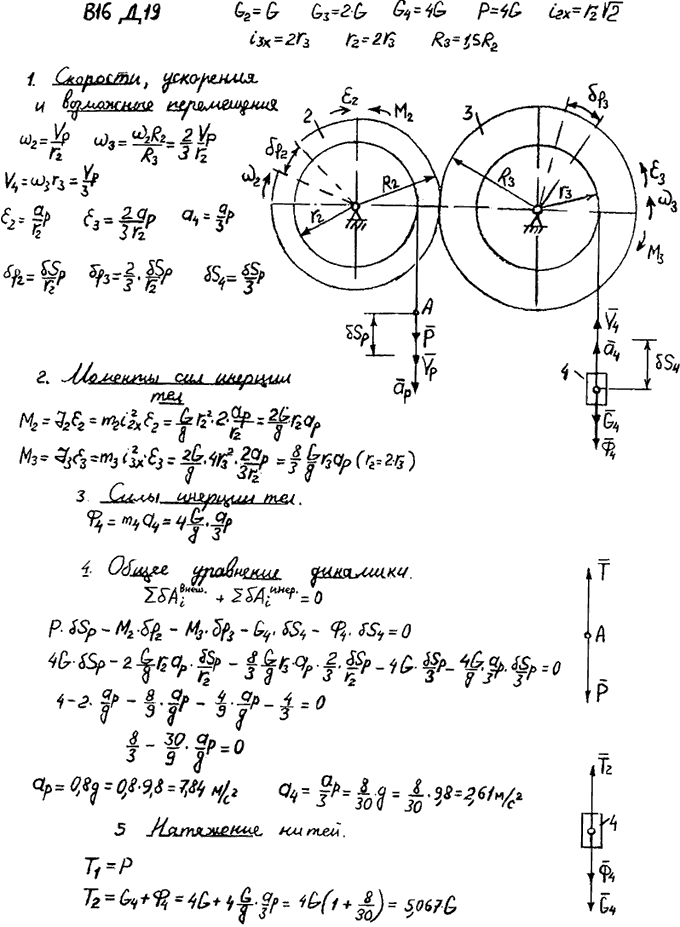 В16 Д19 G₂=G G₃=2·G G₄=4G P=4G i₂ₓ=r₂√2
i₃ₓ=2r₃ r₂=2r₃ R₃=1,5R₂
1. Скорости, ускорения
и возможные перемещения
ω₂=Vp/r₂ ω₃=ω₂R₂/R₃=2/3 Vp/r₂
V₄=ω₃r₃=Vp/3
ε₂=ap/r₂ ε₃=2ap/3r₂ a₄=ap/3
δφ₂=δSp/r₂ δφ₃=2/3·δSp/r₂ δS₄=δSp/3
2 ε₂ M₂ 3 δφ₃
δφ₂ ω₂ R₂ r₂ R₃ r₃ ε₃ ω₃ M₃
A δSp P̄ V̄p āp
V̄₄ ā₄ δS₄ 4 Ḡ₄ Φ̄₄
2. Моменты сил инерции
тел
M₂=J₂ε₂=m₂i²₂ₓε₂=G/g r₂²·2·ap/r₂=2G/g r₂ap
M₃=J₃ε₃=m₃i²₃ₓ·ε₃=2G/g·4r₃²·2ap/3r₂=8/3 G/g r₃ap (r₂=2·r₃)
3. Силы инерции тел.
Φ₄=m₄a₄=4G/g·ap/3
4. Общее уравнение динамики.
ΣδAᵢ^внеш. + ΣδAᵢ^инер.=0
P·δSp − M₂·δφ₂ − M₃·δφ₃ − G₄·δS₄ − Φ₄·δS₄=0
4G·δSp − 2 G/g r₂ap·δSp/r₂ − 8/3 G/g r₃·ap·2/3·δSp/r₂ − 4G·δSp/3 − 4G/g·ap/3·δSp/3=0
4−2·ap/g − 8/9·ap/g − 4/9·ap/g − 4/3=0
8/3 − 30/9·ap/g=0
ap=0,8g=0,8·9,8=7,84 м/с² a₄=ap/3=8/30·g=8/30·9,8=2,61м/с²
T̄
A
P̄
5 Натяжение нитей.
T₁=P
T₂=G₄+Φ₄=4G+4G/g·ap/3=4G(1+8/30)=5,067G
T̄₂
4
Φ̄₄
Ḡ₄